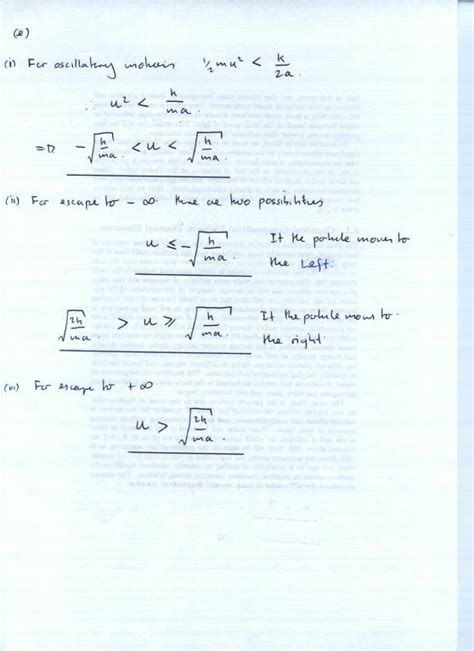 (e)
(i) For oscillatory motion ½mu² < k/2a.
∴ u² < k/ma.
⇒ -√(k/ma.) < u < √(k/ma.)
(ii) For escape to - ∞ there are two possibilities
u ≤ -√(k/ma.) If the particle moves to
the Left.
√(2k/ma.) > u ⩾ √(k/ma.) If the particle moves to
the right.
(iii) For escape to +∞
u > √(2k/ma.)